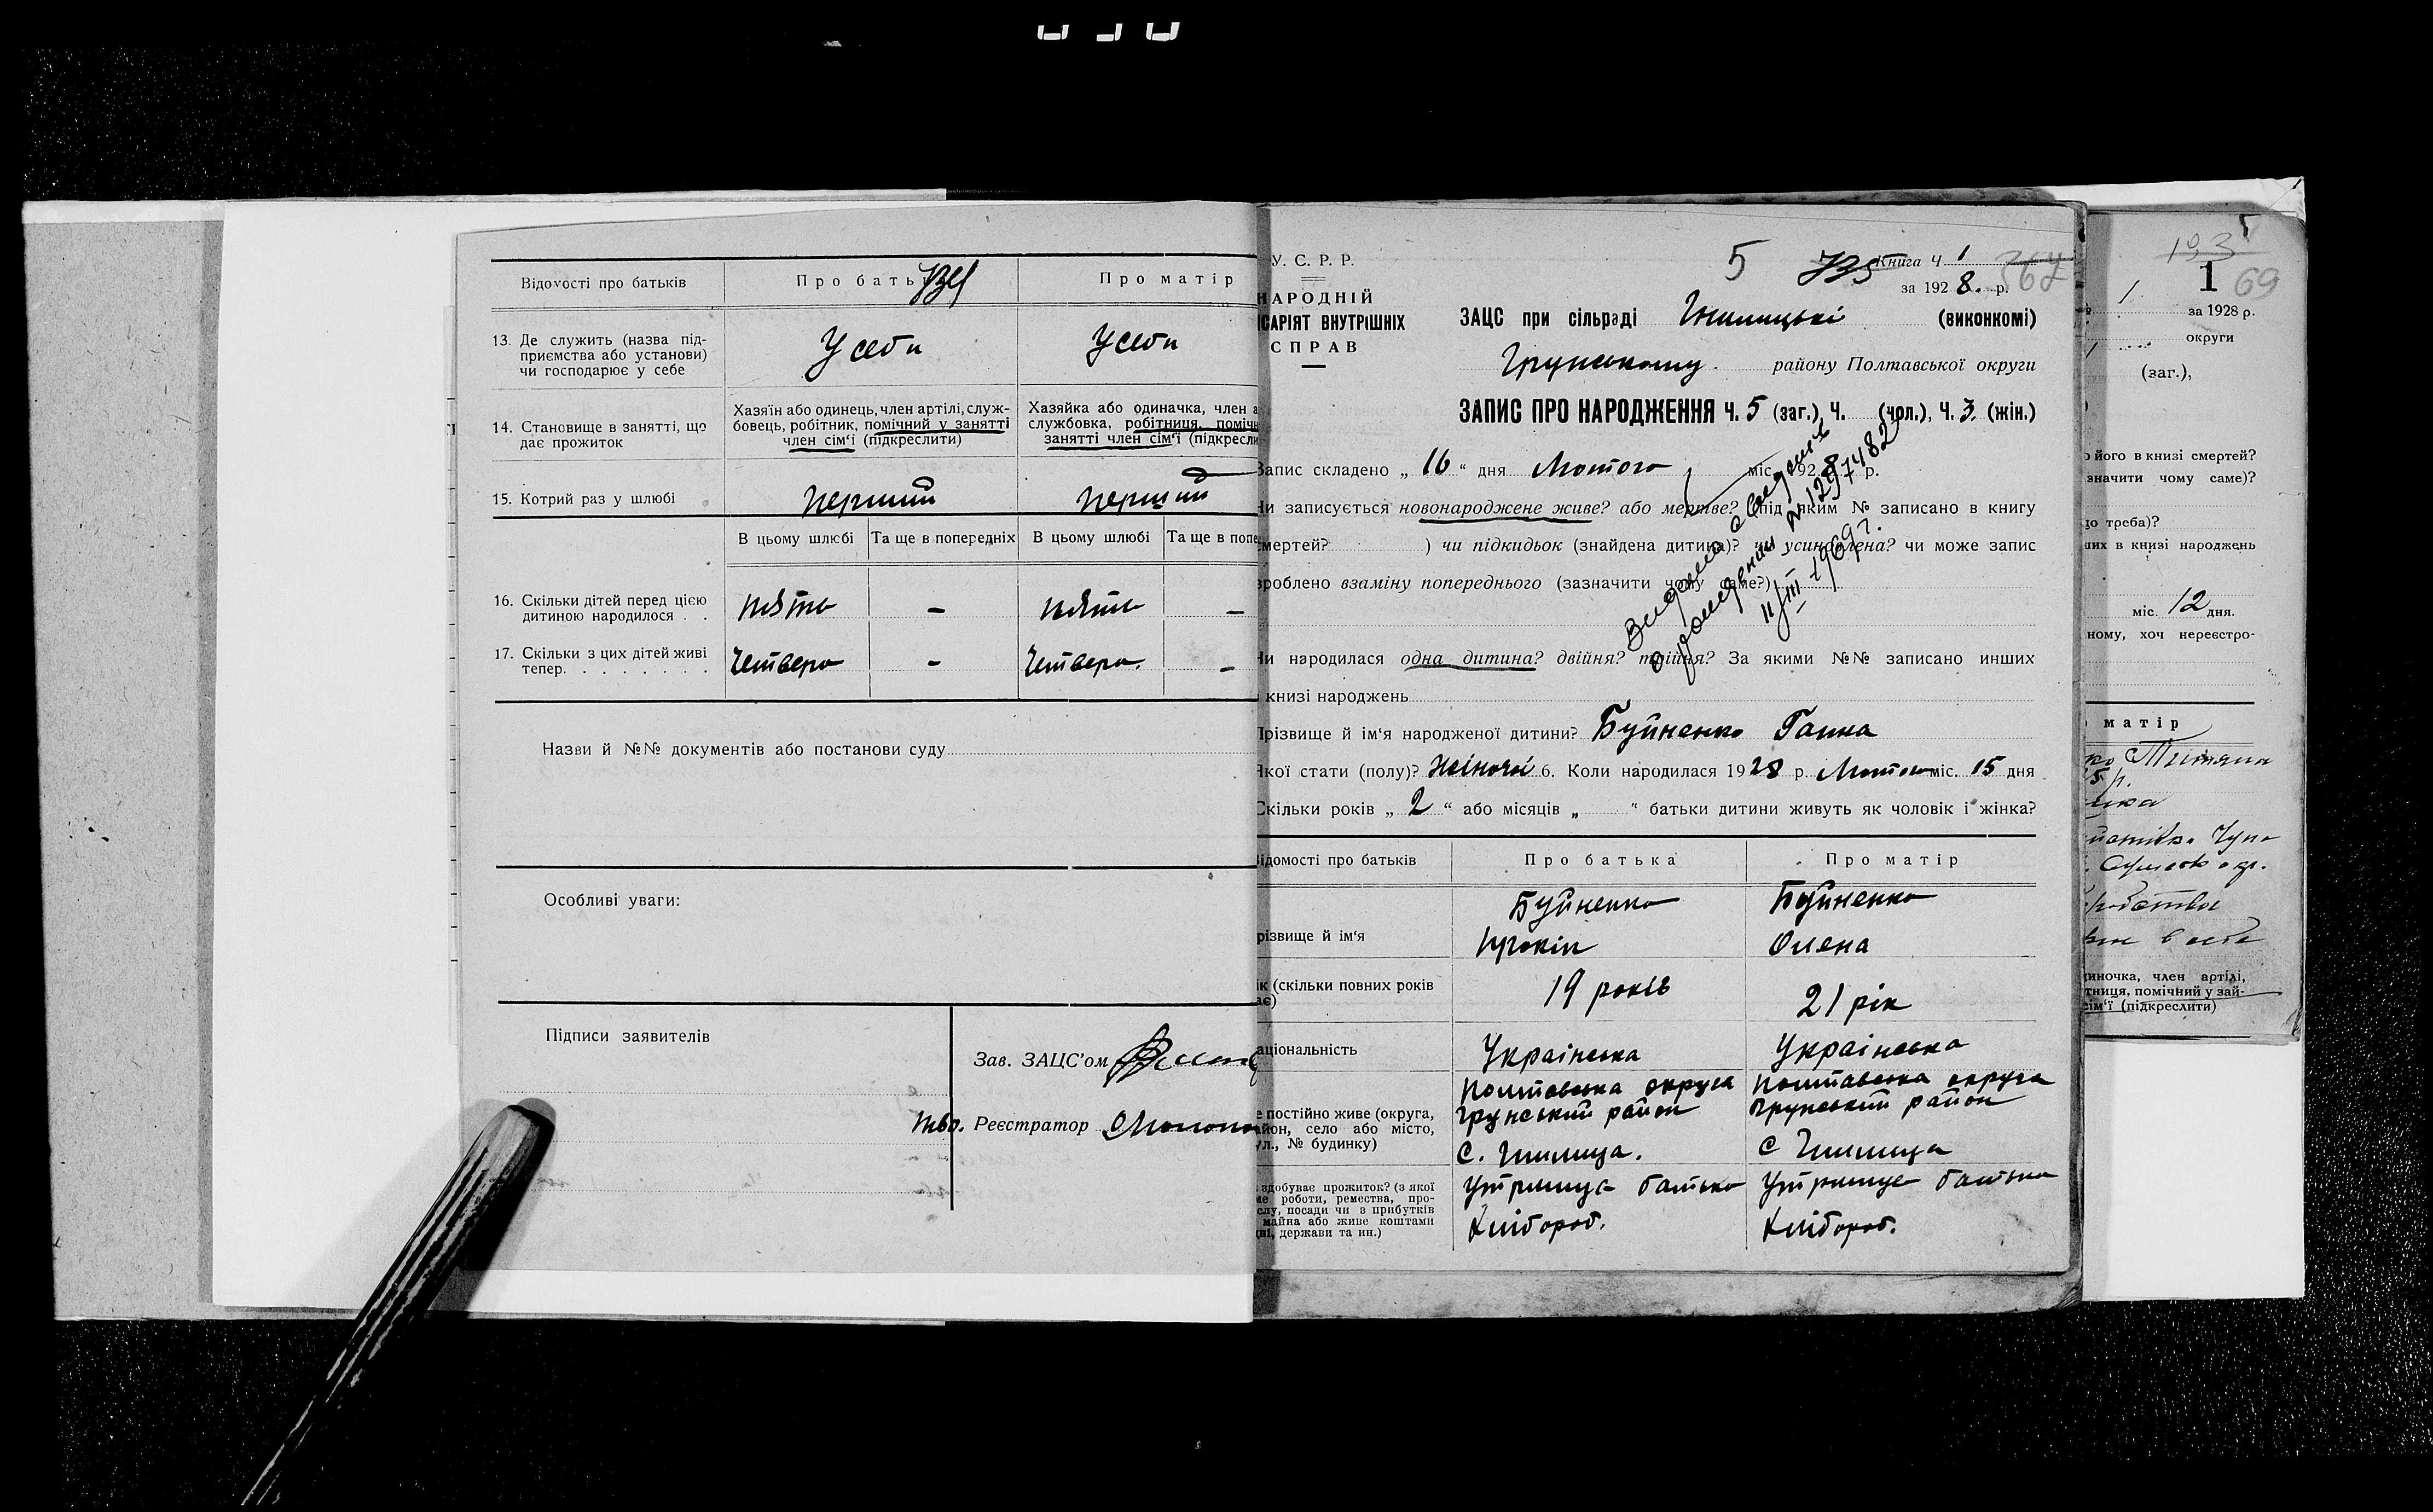 Відомості про батьків
Про батька
Про матір
13. Де служить (назва під-
приємства або установи)
чи господарює у себе
У себе
У себе
14. Становище в занятті, що
дає прожиток
Хазяїн або одинець, член артілі, служ-
бовець, робітник, помічний у занятті
член сім'ї (підкреслити)
Хазяйка або одиначка, член а
службовка, робітниця, поміч
занятті член сім'ї (підкресли
15. Котрий раз у шлюбі
перший
перший
В цьому шлюбі
Та ще в попередніх
В цьому шлюбі
Та ще в попе
16. Скільки дітей перед цією
дитиною народилося . .
пять
–
пять
–
17. Скільки з цих дітей живі
тепер. . . . . . . .
Четверо
–
Четверо.
–
Назви й №№ документів або постанови суду
Особливі уваги:
Підписи заявителів
Зав. ЗАЦС'ом
твр. Реєстратор
У. С. Р. Р.
НАРОДНІЙ
САРІЯТ ВНУТРІШНІХ
СПРАВ
5
735
Книга Ч 1
367
за 1928. р.
ЗАЦС при сільраді (виконкомі)
Грунському району Полтавської округи
ЗАПИС ПРО НАРОДЖЕННЯ Ч. 5 (заг.), Ч. (чол.), Ч. 3. (жін.)
Запис складено „ 16 “ дня Лютого міс. 1928 р.
Чи записується новонароджене живе? або мертве? (під яким № записано в книгу
смертей? ) чи підкидьок (знайдена дитина)? чи усиновлена? чи може запис
зроблено взаміну попереднього (зазначити чому саме?)
Видано свидетел
о рождении № 1297482
11/III-1969г.
Чи народилася одна дитина? двійня? трійня? За якими №№ записано инших
книзі народжень
Прізвище й ім'я народженої дитини? Буйненко Ганна
Якої стати (полу)? Жіночої 6. Коли народилася 1928 р. Лютого міс. 15 дня
Скільки років „ 2 “ або місяців „ “ батьки дитини живуть як чоловік і жінка?
Відомості про батьків
Про батька
Про матір
різвище й ім'я
Буйненко
Прокіп
Буйненко
Олена
ік (скільки повних років
ає)
19 років
21 рік
аціональність
Українська
Українська
е постійно живе (округа,
йон, село або місто,
ул., № будинку)
Полтавська округа
Грунський район
С. Гнилиця.
Полтавська округа
Грунський район
С Гнилиця
здобуває прожиток? (з якої
ме роботи, ремества, про-
слу, посади чи з прибутків
майна або живе коштами
ні, держави та ин.)
Утримує батько
Хлібороб.
Утримує батько
Хлібороб.
193
1
69
1
за 1928 р.
округи
(заг.),
його в книзі смертей?
значити чому саме)?
що треба)?
ших в книзі народжень
міс. 12 дня.
ному, хоч нереєстро-
матір
5 р.
диночка, член артілі,
тниця, помічний у зай-
сім'ї (підкреслити)